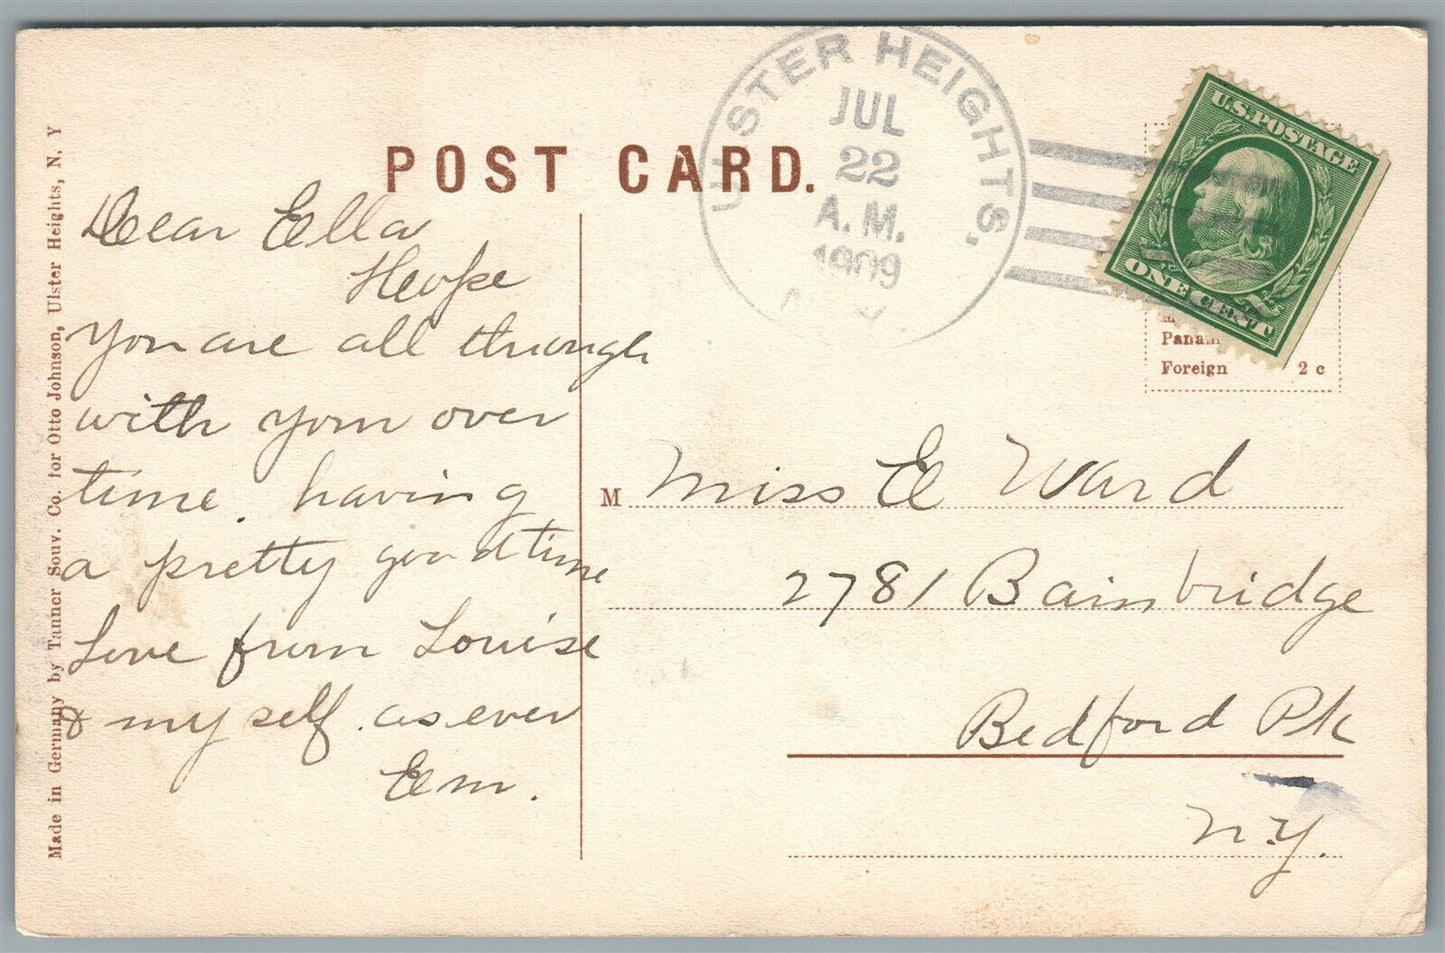 POST CARD.
ULSTER HEIGHTS,
JUL
22
A. M.
1909
N. Y.
U.S. POSTAGE
ONE CENT
Foreign 2 c
Dear Ella
Hope
you are all through
with your over
time. having
a pretty good time
Love from Louise
& my self. as ever
Em.
M iss E Ward
2781 Bainbridge
Bedford Pk
N.Y.
Made in Germany by Tanner Souv. Co. for Otto Johnson, Ulster Heights, N. Y